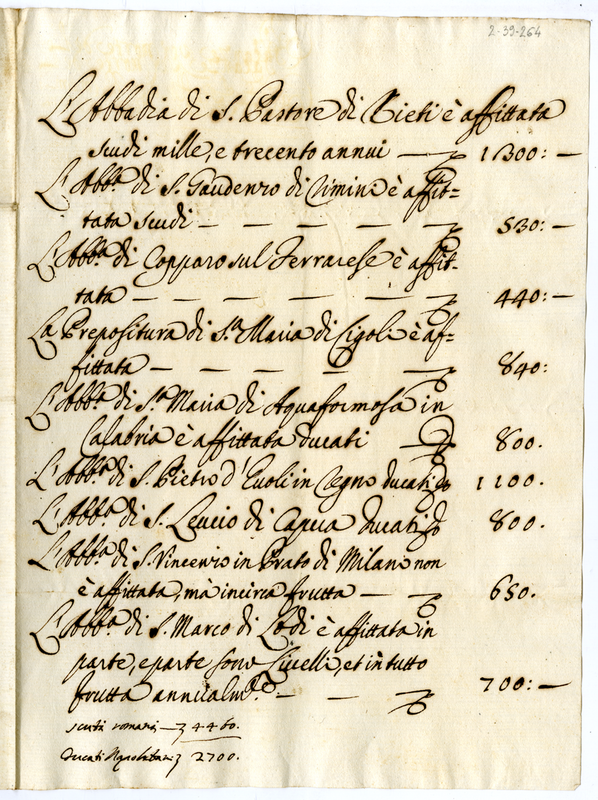 2-39-264
L'Abbadia di S. Pastore di Rieti è affittata
scudi mille, e trecento annui — 1300: —
L'Abb.ª di S. Gaudenzo di Rimini è affit=
tata scudi — — — — — 530: —
L'Abb.ª di Copparo sul Ferrarese è affit-
tata — — — — — — 440: —
La Prepositura di S.ª Maria di Cigoli è af=
fittata — — — — — 840:
L'Abb.ª di S.ª Maria di Aquaformosa in
Calabria è affittata ducati — 800.
L'Abb.ª di S. Pietro d'Evoli in Regno ducati 1100.
L'Abb.ª di S. Leucio di Capua ducati 800.
L'Abb.ª di S. Vincenzo in Prato di Milano non
è affittata, mà incirca frutta — — 650.
L'Abb.ª di S. Marco di Lodi è affittata in
parte, e parte sono Livelli, et in tutto
frutta annualm.te — — — 700: —
scudi romani — 4460.
Ducati Napoletani 2700.